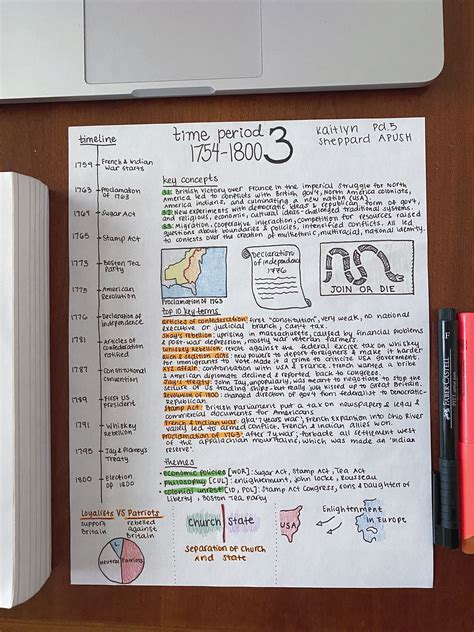 time period 3
1754-1800
Kaitlyn Pd.5
Sheppard APUSH
timeline
1754 French & Indian War starts
1763 Proclamation of 1763
1764 Sugar Act
1765 Stamp Act
1773 Boston Tea Party
1775 American Revolution
1776 Declaration of Independence
1781 Articles of Confederation ratified
1787 Constitutional Convention
1789 First US President
1791 Whiskey Rebellion
1795 Jay & Pinckney's Treaty
1800 Election of 1800
key concepts
3.1: British victory over France in the imperial struggle for North
America led to conflicts with British gov't, North America colonists,
America Indians, and culminating a new nation (USA).
3.2: New experiments with democratic ideas & republican form of gov't,
and religious, economic, cultural ideas - challenged traditional systems.
3.3: Migration, cooperative interaction, competition for resources raised
questions about boundaries & policies, intensified conflicts. All led
to contests over the creation of multiethnic, multiracial, national identity.
Proclamation of 1763
Declaration of Independence
1776
JOIN OR DIE
top 10 key terms
Articles of Confederation: first "constitution", very weak, no national
executive or judicial branch, can't tax.
Shay's rebellion: uprising in Massachusetts, caused by financial problems
& post-war depression, mostly war veteran farmers.
Whiskey Rebellion: revolt against the federal excise tax on whiskey
Alien & Sedition Acts: new powers to deport foreigners & made it harder
for immigrants to vote. Made it a crime to criticize USA government.
XYZ affair: confrontation with USA & France. French wanted a bribe
& American diplomats declined & reported back to congress.
Jay's Treaty: John Jay, unpopularly, was meant to negotiate to stop the
seizure of US trading ships - but really just kissed up to Great Britain.
Revolution of 1800: changed direction of gov't from federalist to Democratic-
Republican
Stamp Act: British Parliament put a tax on newspapers & legal &
commercial documents for Americans
French & Indian War: aka '7 years war', French expansion into Ohio River
Valley led to armed conflict. French & Indian allies won.
Proclamation of 1763: after 7y war; forbade all settlement west
of the Appalachian mountains, which was made an 'Indian
reserve'.
themes
• Economic policies [WOR]: Sugar Act, Stamp Act, Tea Act
• Philosophy [CUL]: enlightenment, John Locke, Rousseau
• Colonial unrest [ID, POL]: Stamp Act Congress, Sons & Daughters of
Liberty, Boston Tea Party
Loyalists VS Patriots
support Britain
rebelled against Britain
Neutral
Patriots
Church State
Separation of Church
and State
USA
Enlightenment
in Europe
FABER-CASTELL